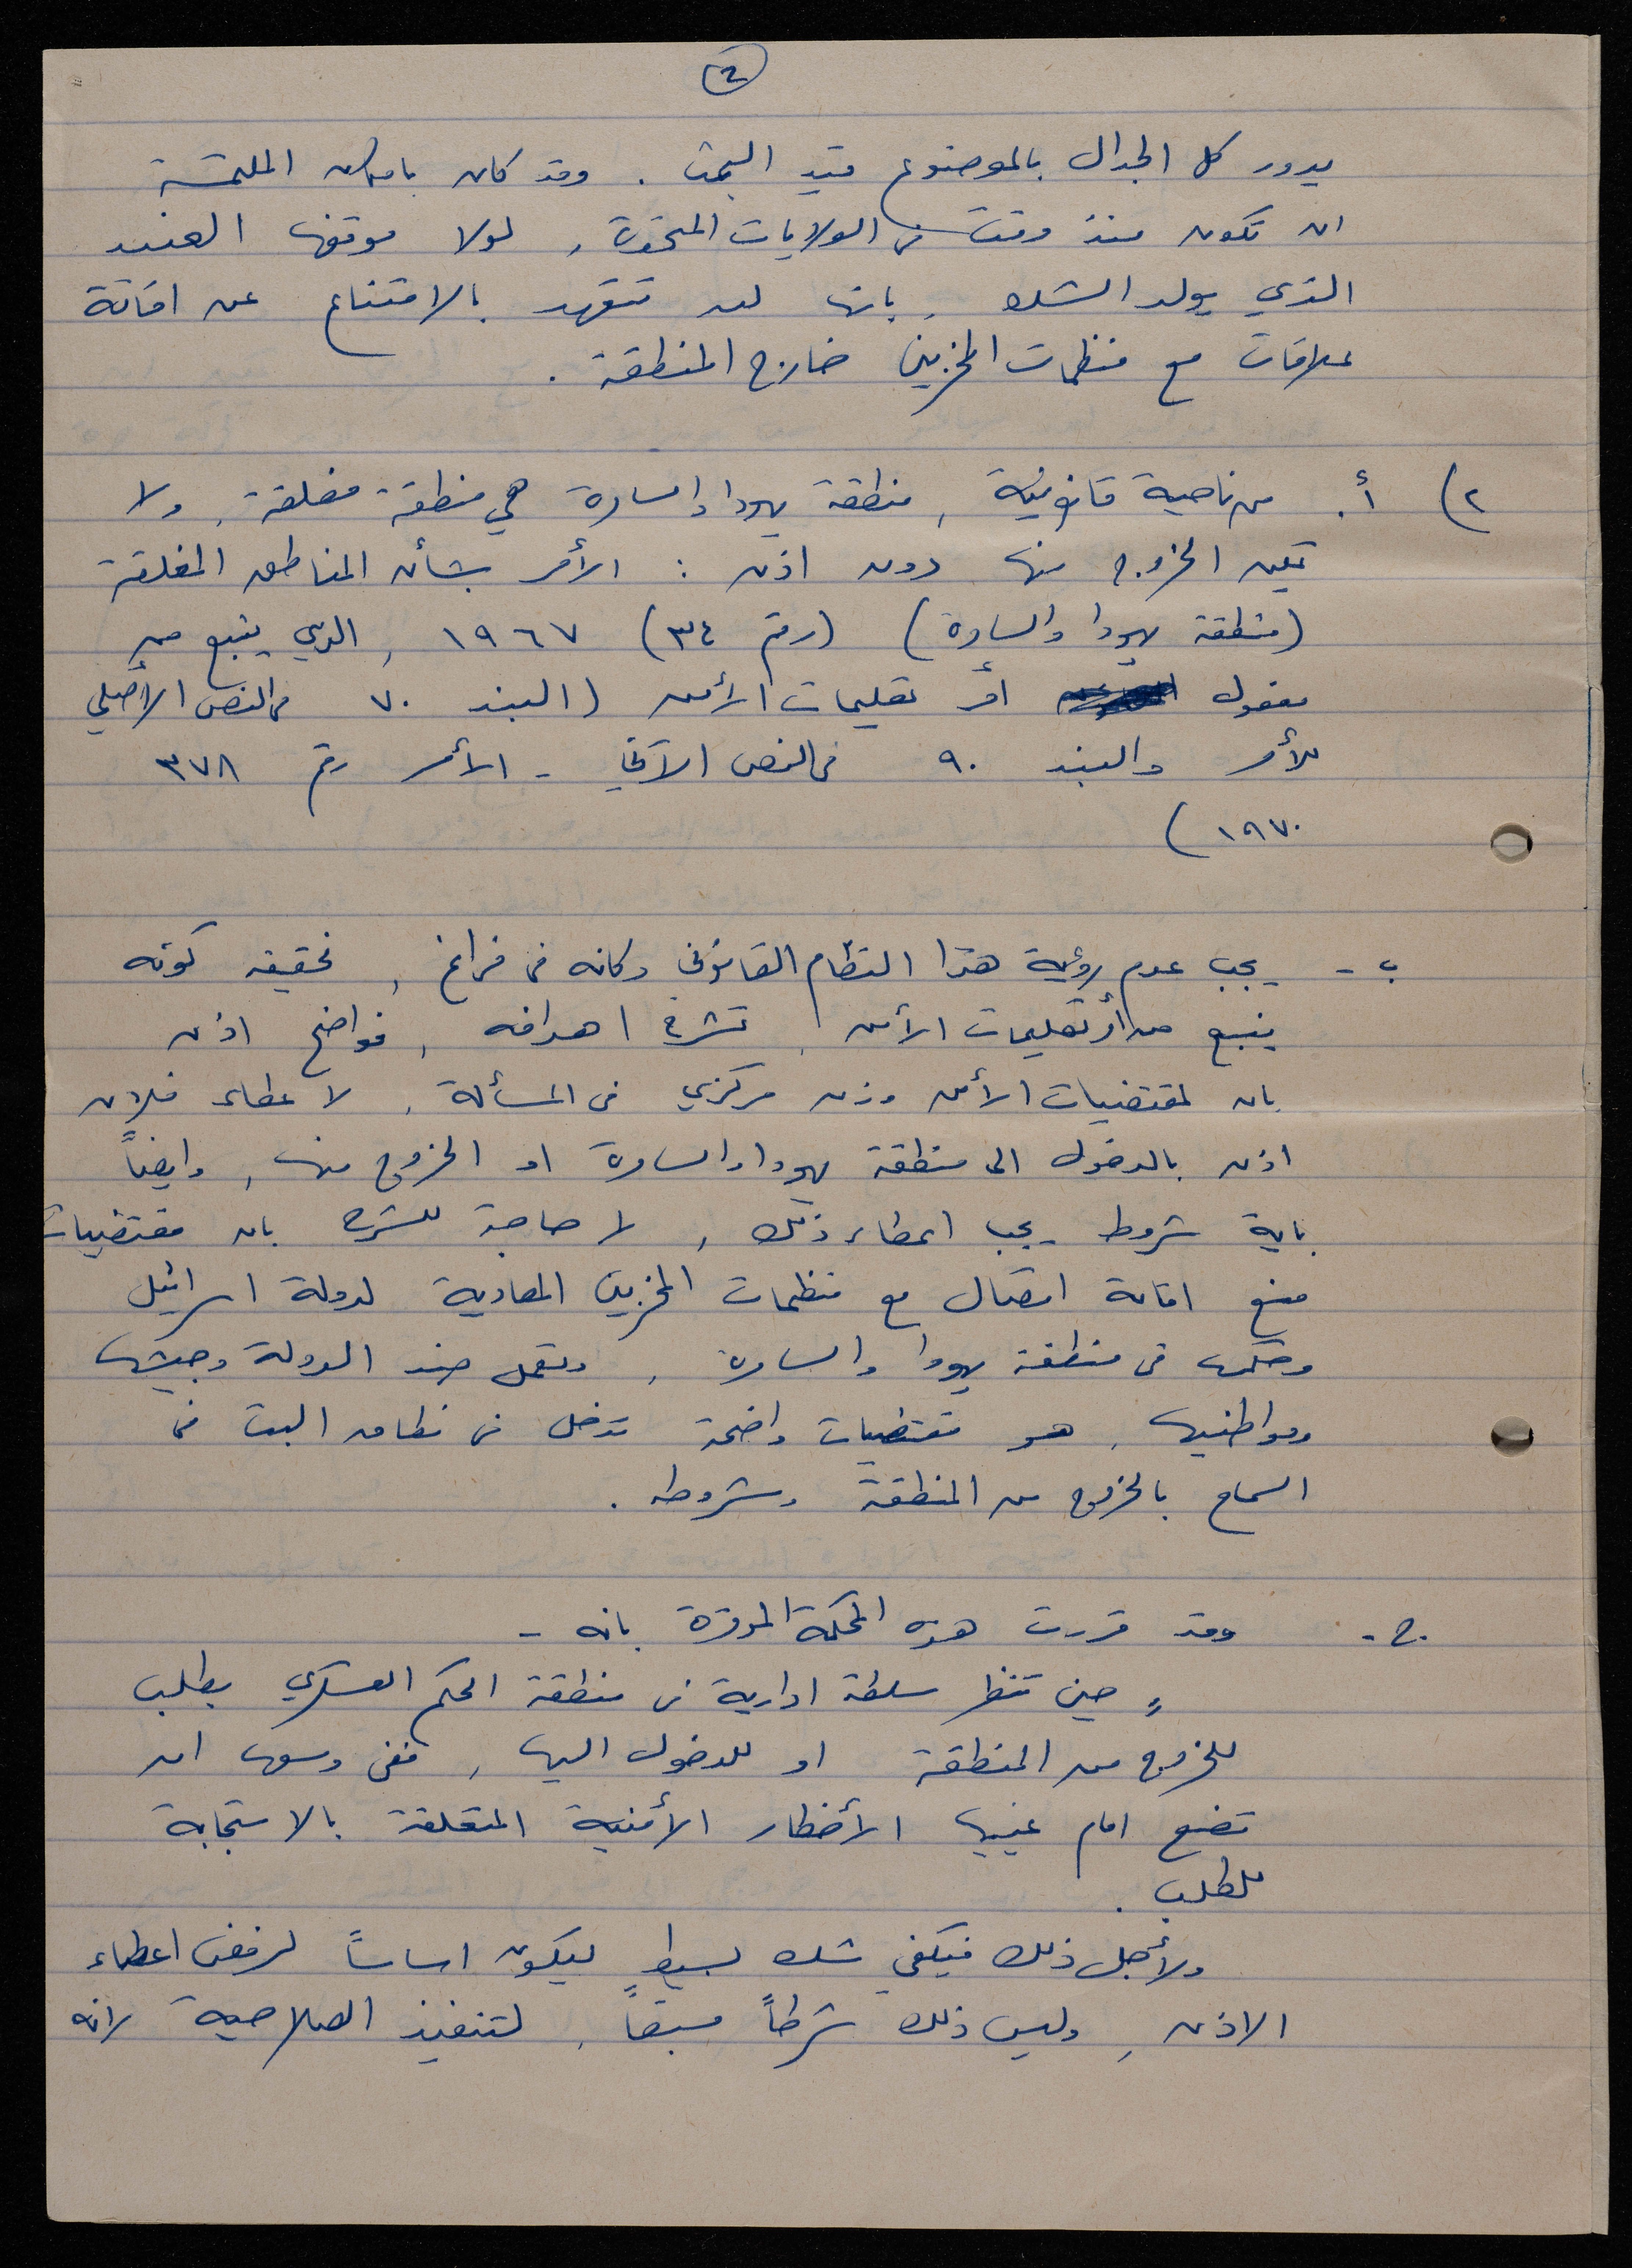 2
يدور كل الجدال بالموضوع قيد البحث . وقد كان بامكان الملتمسة
ان تكون منذ وقت في الولايات المتحدة , لولا موقفها العنيد
الذي يولد الشك , بانها لن تتعهد بالامتناع عن اقامة
علاقات مع منظمات المخربين خارج المنطقة .
٢) أ. من ناحية قانونية , منطقة يهودا والسامرة هي منطقة مغلقة , ولا
يمكن الخروج منها دون اذن : الأمر بشأن المناطق المغلقة
(منطقة يهودا والسامرة) (رقم ٣٤) ١٩٦٧ , الذي ينبع من
مفعول أمر تعليمات الأمن (البند ٧٠ في النص الأصلي
للأمر والبند ٩٠ في النص الآني - الأمر رقم ٣٧٨
١٩٧٠)
ب - يجب عدم رؤية هذا النظام القانوني وكانه في فراغ , فحقيقة كونه
ينبع من أمر تعليمات الأمن , تشرح اهدافه , فواضح اذن
بان لمقتضيات الأمن وزن مركزي في المسألة , لاعطاء فلان
اذن بالدخول الى منطقة يهودا والسامرة او الخروج منها , وايضاً
باية شروط يجب اعطاء ذلك , لا حاجة للشرح بان مقتضيات
منع اقامة اتصال مع منظمات المخربين المعادية لدولة اسرائيل
وحكمها في منطقة يهودا والسامرة , وتعمل ضد الدولة وجيشها
ومواطنيها , هو مقتضيات واضحة تدخل في نطاق البت في
السماح بالخروج من المنطقة وشروطه .
ج - وقد قررت هذه المحكمة الموقرة بانه -
" حين تنظر سلطة ادارية في منطقة الحكم العسكري بطلب
للخروج من المنطقة او للدخول اليها , ففي وسعها ان
تضع امام عينيها الأخطار الأمنية المتعلقة بالاستجابة
للطلب .
ولأجل ذلك فيكفي شك بسيط ليكون اساساً لرفض اعطاء
الاذن , وليس ذلك شرطاً مسبقاً , لتنفيذ الصلاحية لانه